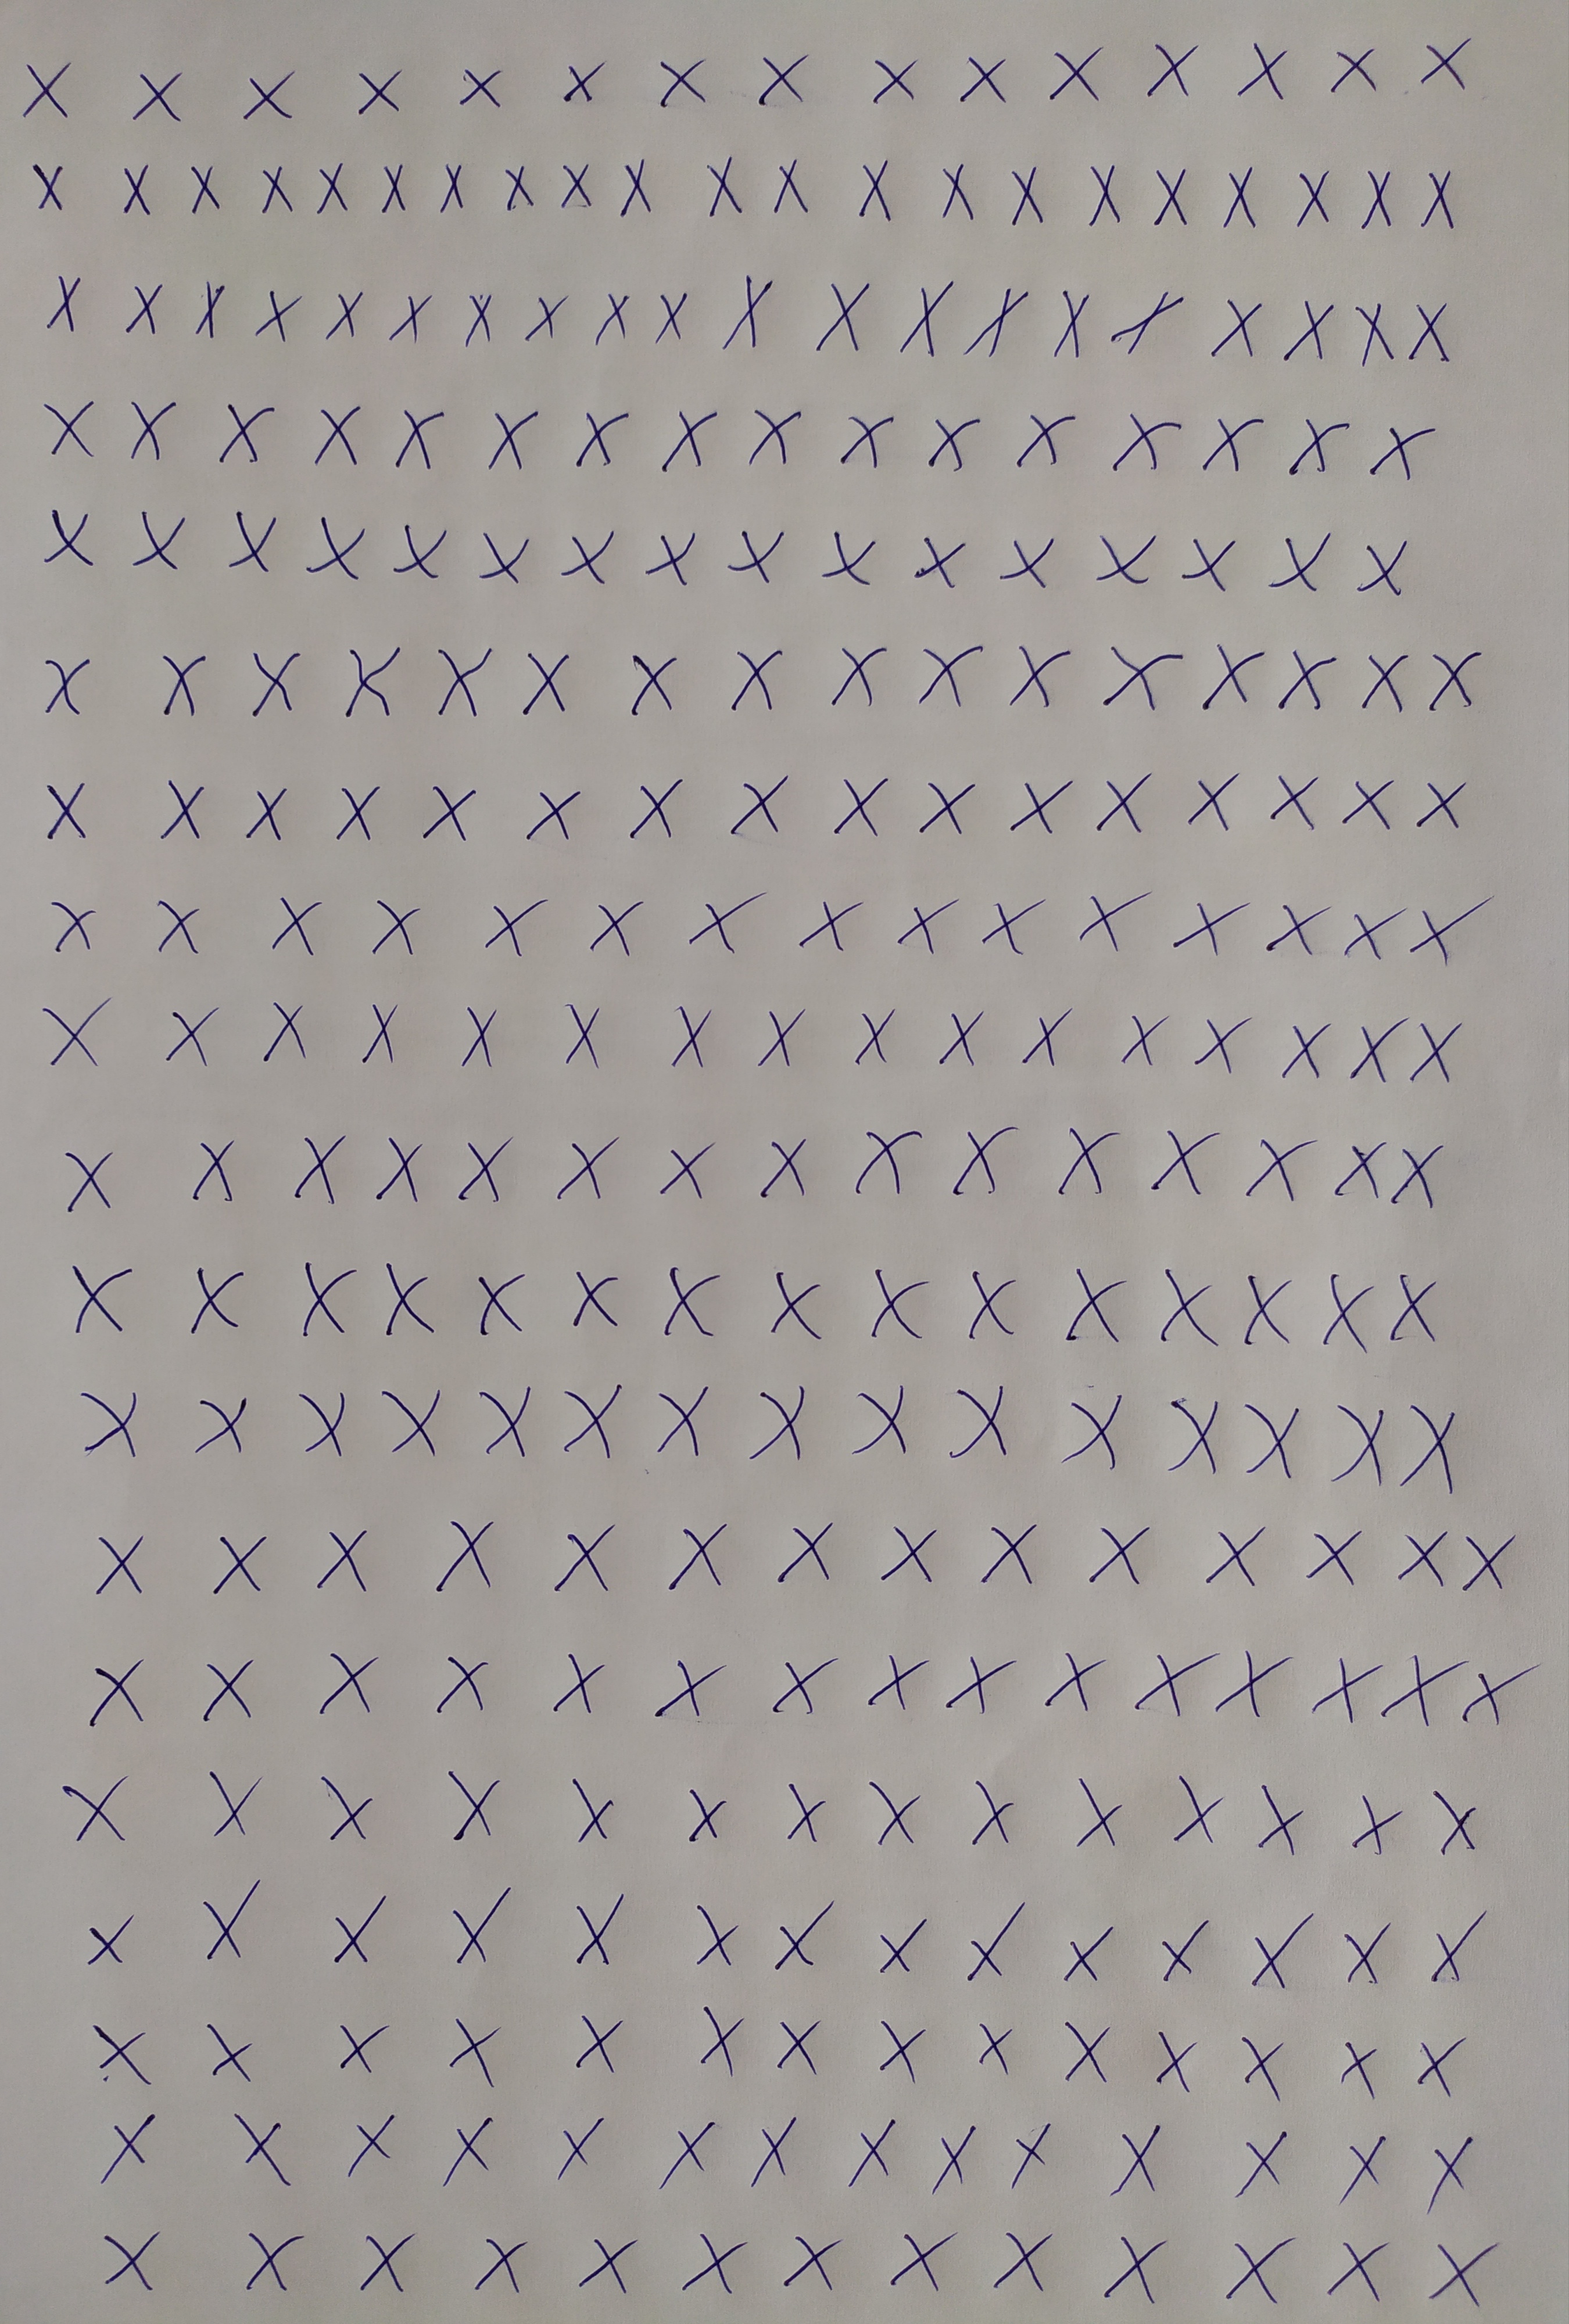 X X X X X X X X X X X X X X X
X X X X X X X X X X X X X X X X X X X X X
X X X X X X X X X X X X X X X X X X X X
X X X X X X X X X X X X X X X X
X X X X X X X X X X X X X X X X
X X X X X X X X X X X X X X X X
X X X X X X X X X X X X X X X X
X X X X X X X X X X X X X X X
X X X X X X X X X X X X X X X X
X X X X X X X X X X X X X X X
X X X X X X X X X X X X X X X
X X X X X X X X X X X X X X X
X X X X X X X X X X X X X X
X X X X X X X X X X X X X X X
X X X X X X X X X X X X X X
X X X X X X X X X X X X X X
X X X X X X X X X X X X X X
X X X X X X X X X X X X X X
X X X X X X X X X X X X X